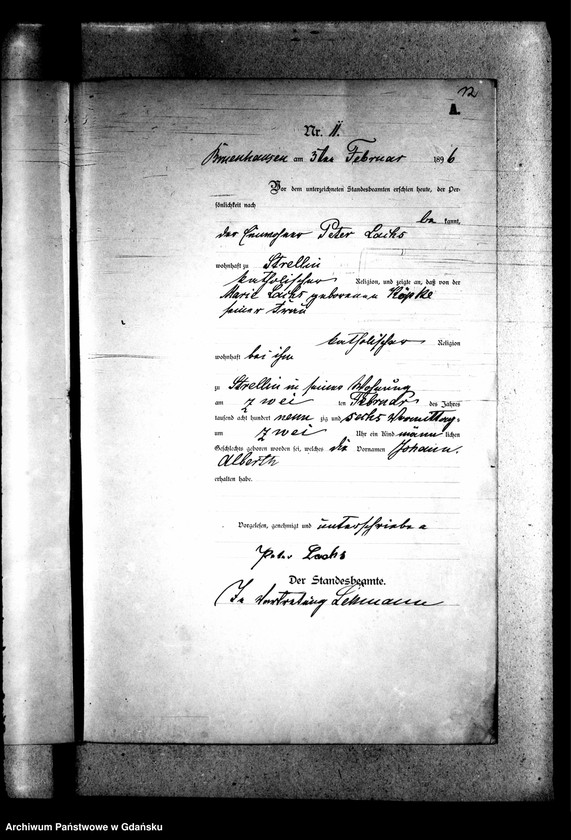 12
A.
Nr. 11.
am 3ten Februar 1896
Vor dem unterzeichneten Standesbeamten erschien heute, der Per-
sönlichkeit nach
be kannt,
der Einwohner Peter Lachs
wohnhaft zu Strellin
katholischer Religion, und zeigte an, daß von der
Marie Lachs geborenen Köpke
seiner Frau
katholischer Religion
wohnhaft bei ihm
zu Strellin in seiner Wohnung
am zwei ten Februar des Jahres
tausend acht hundert neun zig und sechs Vormittag-
um zwei Uhr ein Kind männ lichen
Geschlechts geboren worden sei, welches die Vornamen Johann
Alberth
erhalten habe.
Vorgelesen, genehmigt und unterschrieben
Peter Lachs
Der Standesbeamte.
In Vertretung Lehmann
Archiwum Państwowe w Gdańsku